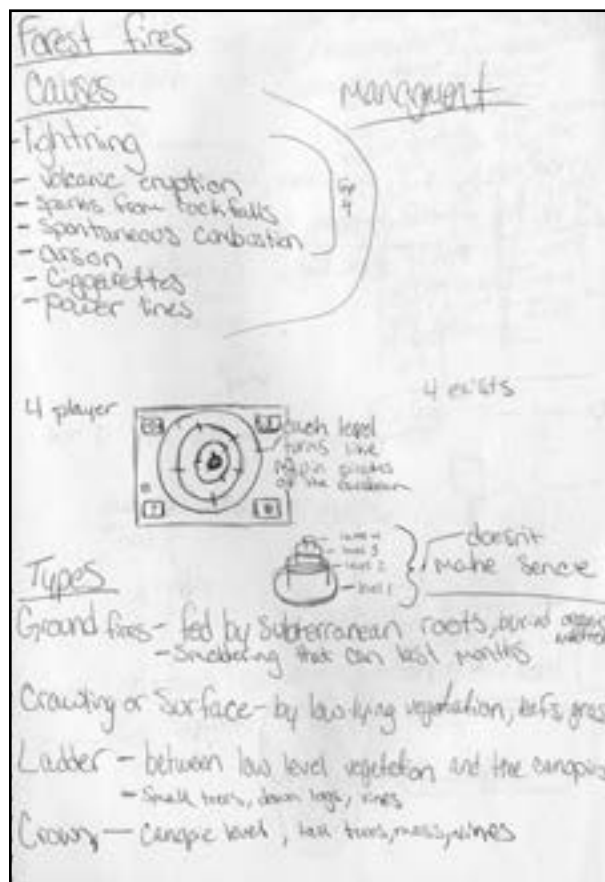 Forest fires
Causes
Managment
- lightning
- volcanic eruption
- sparks from rockfalls
- spontaneous combostion
- arson
- Ciggarettes
- power lines
4
4 exists
4 player
each level
turns like
pirates
of the
level 3
level 2
level 1
doesn't
make sence
Types
Ground fires - fed by subterranean roots, buried
- Smoldering that can last months
Crawling or Surface - by low-lying vegetation,
Ladder - between low level vegetation and tree
- Small trees, down logs, vines
Crown - canopie level, tall trees, moss, vines